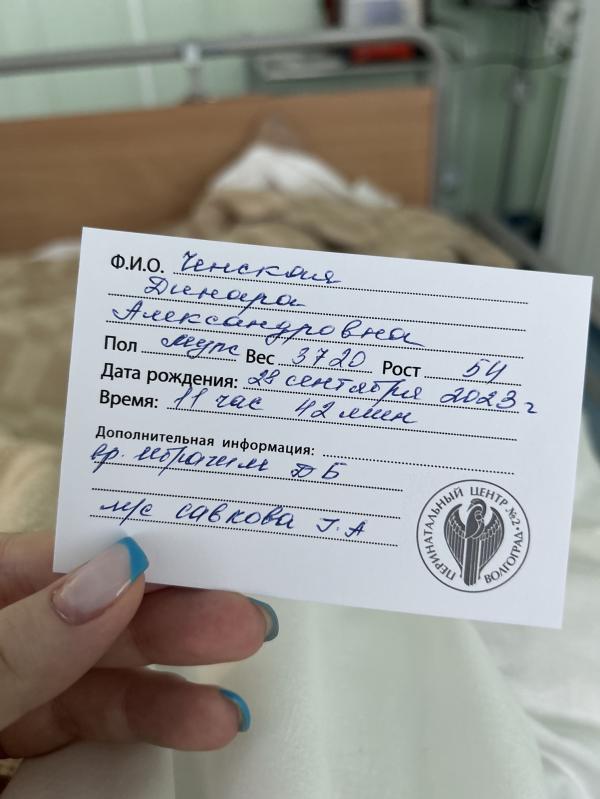 Ф.И.О. Ченская
Динара
Александровна
Пол мужс Вес 3720 Рост 54
Дата рождения: 28 сентября 2023 г
Время: 11 час 42 мин
Дополнительная информация:
вр. Ибрагим Д Б
м/с Савкова Т. А
ПЕРИНАТАЛЬНЫЙ ЦЕНТР №2
ВОЛГОГРАД